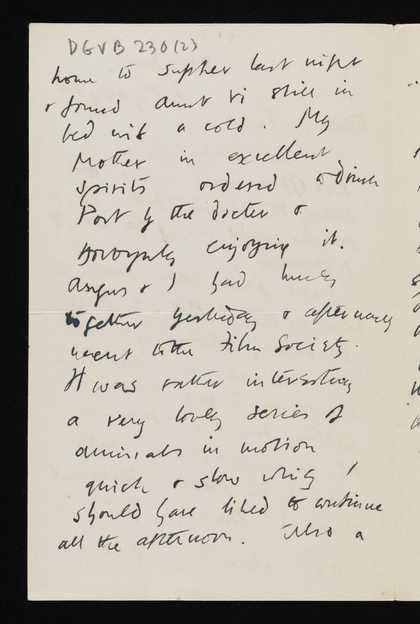 DGVB 230(2)
home to supper last night
& found Aunt Vi still in
bed with a cold. My
Mother in excellent
spirits ordered to drink
Port by the doctor &
thoroughly enjoying it.
Angus & I had lunch
together yesterday & afterwards
went to the Film Society.
It was rather interesting
a very lovely series of
animals in motion
quick & slow which I
should have liked to continue
all the afternoon. Also a